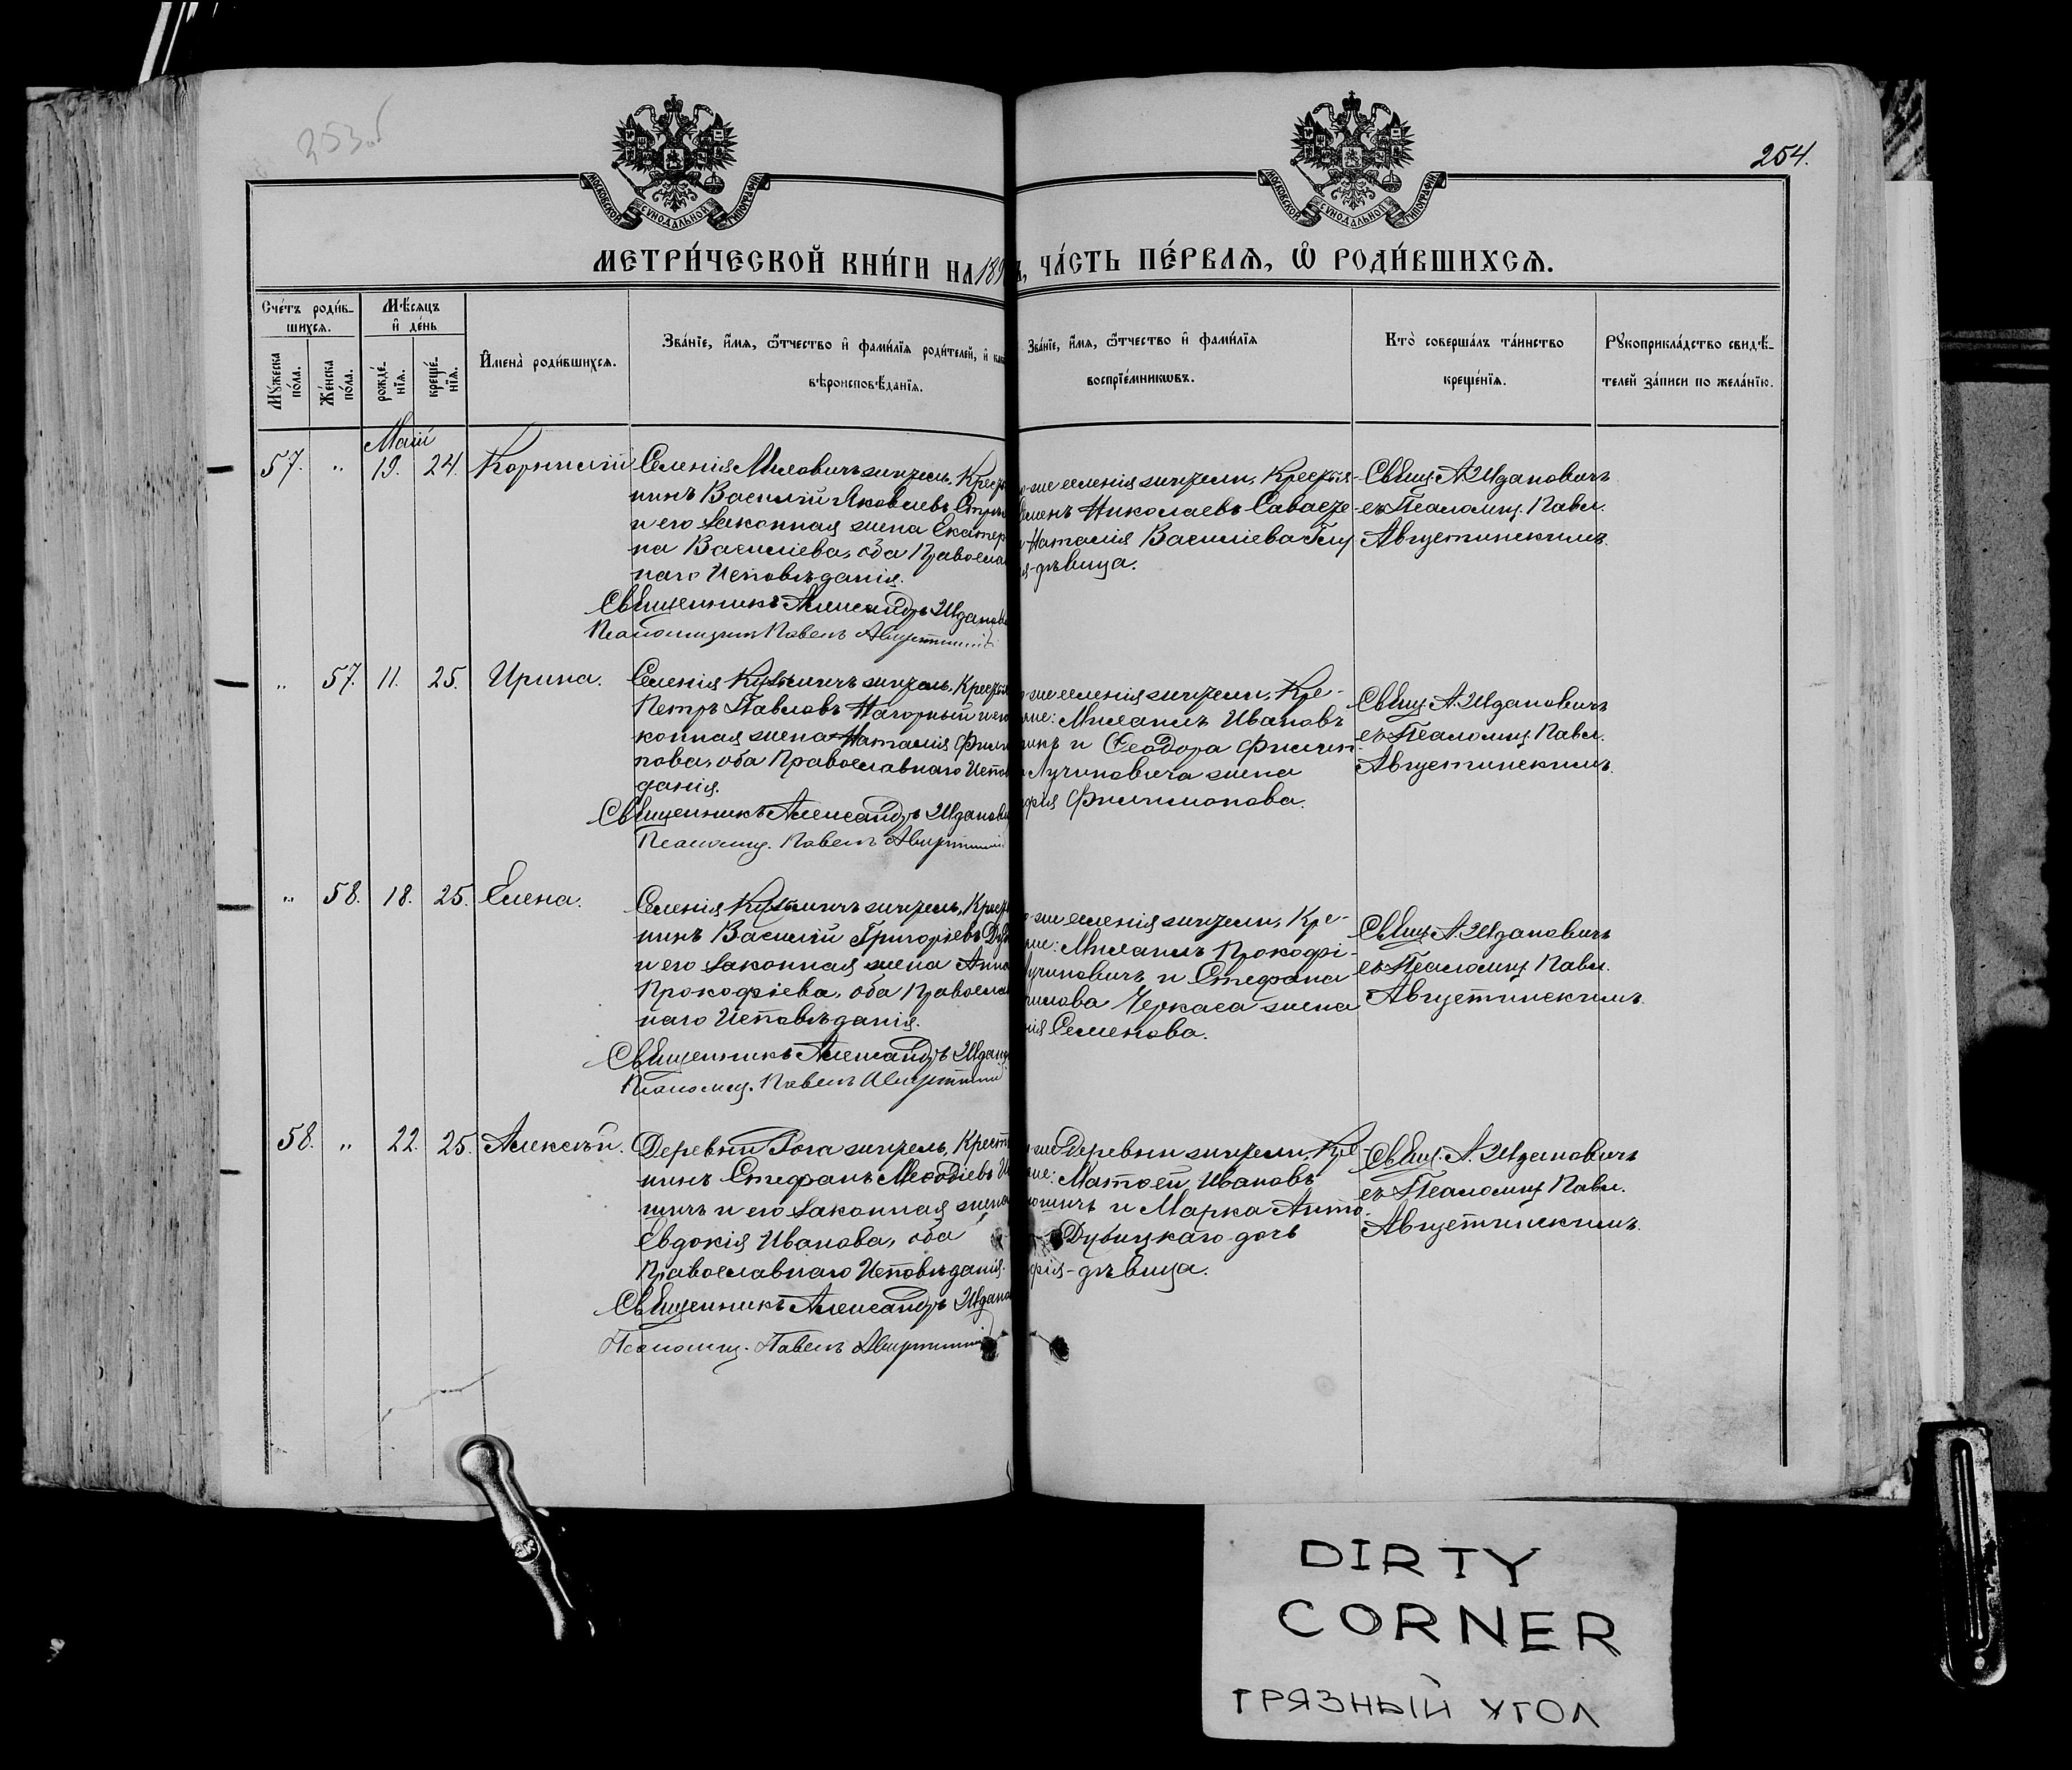 253об
254.
МОСКОВСКОЙ СѴНОДАЛЬНОЙ ТИПОГРАФІИ
МОСКОВСКОЙ СѴНОДАЛЬНОЙ ТИПОГРАФІИ
МЕТРИ́ЧЕСКОЙ КНИ́ГИ НА 189
ЧА́СТЬ ПЕ́РВАѦ, Ѡ҆ РОДИ́ВШИХСѦ.
Сче́тъ роди́в-
шихсѧ.
Мꙋ́жеска
по́ла.
Же́нска
по́ла.
Мѣ́сѧцъ
и҆ де́нь
рожде́-
нїѧ.
креще́-
нїѧ.
И҆мена̀ роди́вшихсѧ.
Зва́нїе, и҆́мѧ, ѻ҆́тчество и҆ фамѝлїѧ роди́телей, и҆
вѣроисповѣ́данїѧ.
Зва́нїе, и҆́мѧ, ѻ҆́тчество и҆ фамѝлїѧ
воспрїе́мникѡвъ.
Кто̀ соверша́лъ та́инство
креще́нїѧ.
Рꙋкоприкла́дство свидѣ́-
телей за́писи по жела́нїю.
Май
57. „ 19. 24. Корнилій
Селенія Миловичъ житель, Кресть
нинъ Василій Яковлевъ
и его законная жена Екатер
на Василіева, оба Правосла
наго Исповѣданія.
Священникъ Александръ Жданов
Псаломщикъ Павелъ
же селенія жители, Крестья-
Николаевъ
Наталія Василіева
дѣвица.
Свящ. А. Ждановичъ
съ Псаломщ. Павл.
Августинскимъ.
„ 57. 11. 25. Ирина.
Селенія житель, Крестья
Петръ Павловъ Нагорный и его
конная жена Наталія Фили
нова, оба Православнаго Испов
данія.
Священникъ Александръ Жданови
Псаломщ. Павелъ
же селенія жители, Кре-
Михаилъ Ивановъ
и Ѳеодора Филип-
Лучиновича жена
Филимонова.
Свящ. А. Ждановичъ
съ Псаломщ. Павл.
Августинскимъ.
„ 58. 18. 25. Елена.
Селенія житель, Кресть
нинъ Василій Григорьевъ
и его законная жена Анна
Прокофіева, оба Правосла
наго Исповѣданія.
Священникъ Александръ Ждан
Псаломщ. Павелъ
же селенія жители, Кре-
Михаилъ Прокофі-
и Стефана
Черкаса жена
Семенова.
Свящ. А. Ждановичъ
съ Псаломщ. Павл.
Августинскимъ.
58. „ 22. 25. Алексѣй.
Деревни Рога житель, Крест
нинъ Стефанъ Меѳодіевъ
и его законная жена
Евдокія Иванова, оба
Православнаго Исповѣданія.
Священникъ Александръ Ждано
Псаломщ. Павелъ
же Деревни жители, Кре-
Матѳей Ивановъ
и Марка Анто-
Дубицкаго дочь
дѣвица.
Свящ. А. Ждановичъ
съ Псаломщ. Павл.
Августинскимъ.
DIRTY
CORNER
ГРЯЗНЫЙ УГОЛ